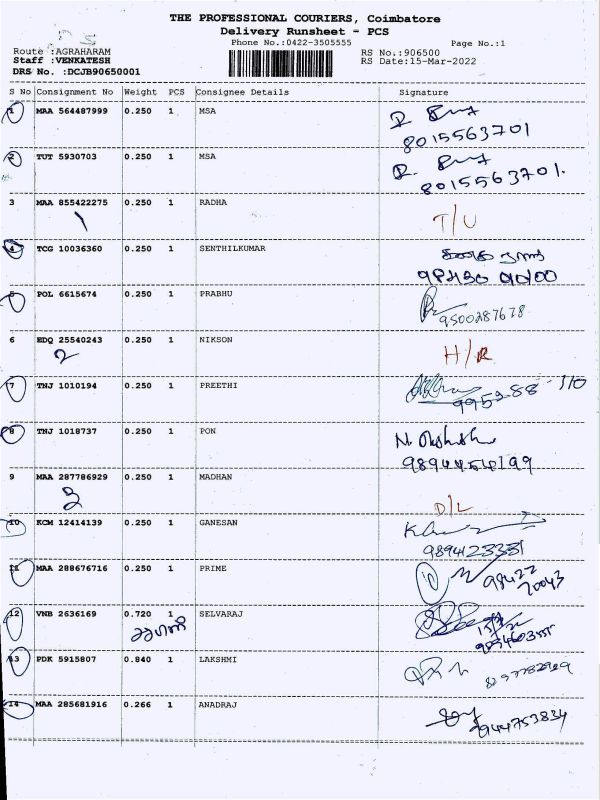 THE PROFESSIONAL COURIERS, Coimbatore
Delivery Runsheet - PCS
Phone No.:0422-3505555
Page No.:1
Route :AGRAHARAM
RS No.:906500
Staff :VENKATESH
RS Date:15-Mar-2022
DRS No. :DCJB90650001
S No Consignment No Weight PCS Consignee Details Signature
1 MAA 564487999 0.250 1 MSA
8015563701
2 TUT 5930703 0.250 1 MSA
8015563701.
3 MAA 855422275 0.250 1 RADHA T/U
1
4 TCG 10036360 0.250 1 SENTHILKUMAR
5 POL 6615674 0.250 1 PRABHU
9500287678
6 EDQ 25540243 0.250 1 NIKSON H/R
2
7 TNJ 1010194 0.250 1 PREETHI
8 TNJ 1018737 0.250 1 PON
9 MAA 287786929 0.250 1 MADHAN
3
D/L
10 KCM 12414139 0.250 1 GANESAN
9894123331
11 MAA 288676716 0.250 1 PRIME
98422
20043
12 VNB 2636169 0.720 1 SELVARAJ
13 PDK 5915807 0.840 1 LAKSHMI
14 MAA 285681916 0.266 1 ANADRAJ
9944753834